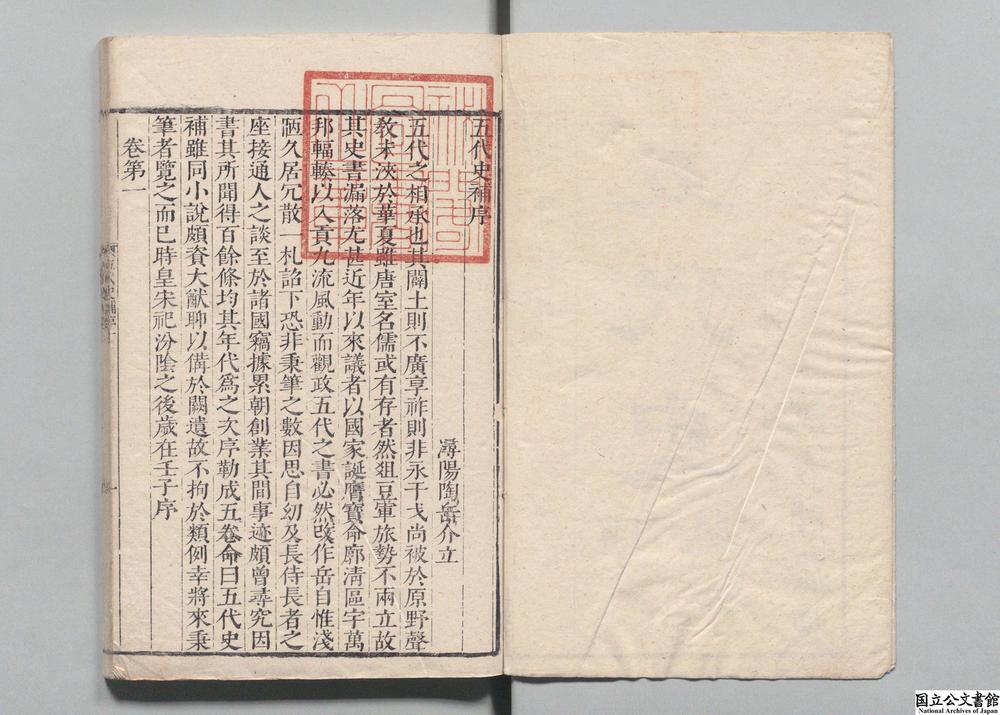 五代史補序
潯陽陶岳介立
五代之相承也其闢土則不廣享祚則非永干戈尚被於原野聲
教未浹於華夏雖唐室名儒或有存者然俎豆軍旅勢不兩立故
其史書漏落尤甚近年以來議者以國家誕膺寶命廓清區宇萬
邦輻輳以入貢九流風動而觀政五代之書必然改作岳自惟淺
陋久居冗散一札詔下恐非秉筆之數因思自幼及長侍長者之
座接通人之談至於諸國竊據累朝創業其間事迹頗曾尋究因
書其所聞得百餘條均其年代爲之次序勒成五卷命曰五代史
補雖同小說頗資大猷聊以備於闕遺故不拘於類例幸將來秉
筆者覽之而已時皇宋祀汾陰之後歲在壬子序
卷第一
国立公文書館
National Archives of Japan